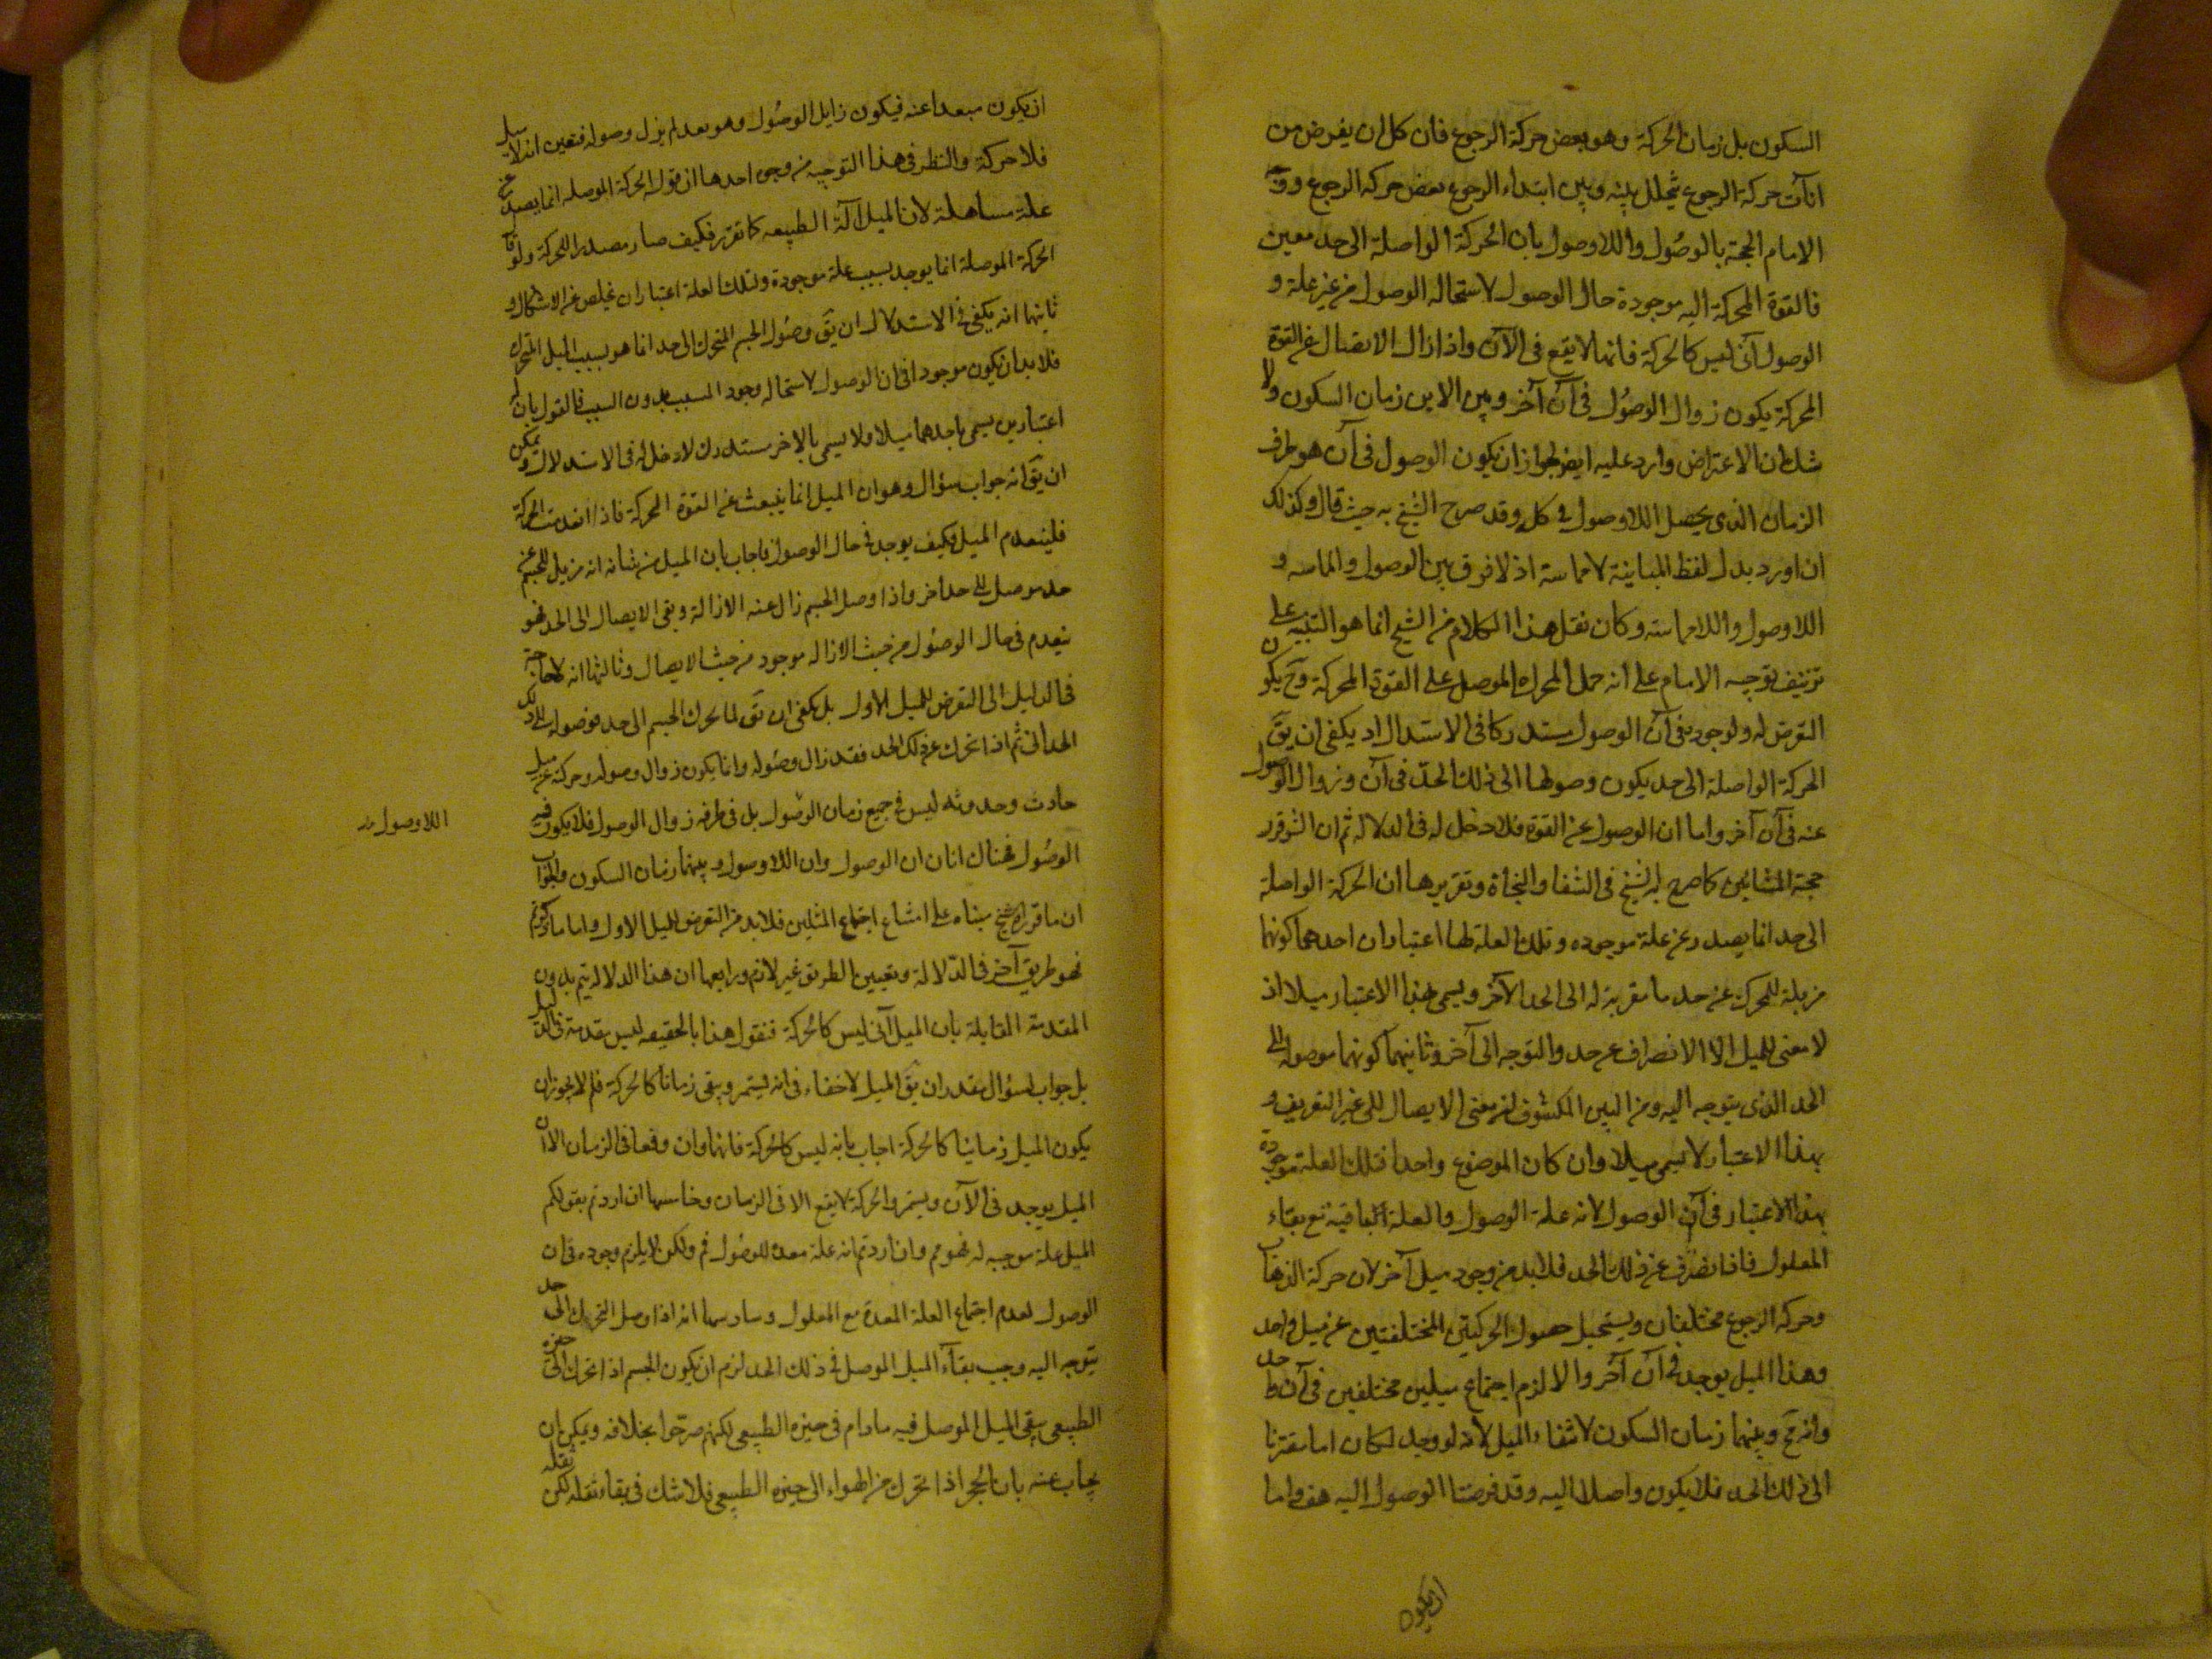 السكون بل زمان الحركة وهو بعض حركة الرجوع فان كل ان يفرض من
انات حركة الرجوع يتخلل بينه وبين ابتداء الرجوع بعض حركة الرجوع ووجه
الامام الحجة بالوصول واللاوصول بان الحركة الواصلة الى حد معين
فالقوة المحركة اليه موجودة حال الوصول لاستحالة الوصول من غير علة و
الوصول آنى ليس كالحركة فانها لا يقع فى الآن واذا زال الاتصال عن القوة
المحركة يكون زوال الوصول فى آن آخر وبين الاين زمان السكون ولا
شك ان الاعتراض وارد عليه ايض لجواز ان يكون الوصول فى آن هو طرف
الزمان الذى يحصل اللاوصول فى كله وقد صرح الشيخ به حيث قال وكذلك
ان اورد بدل لفظ المباينة لا مماسة اذ لا فرق بين الوصول والمماسه و
اللاوصول واللامماسته وكان نقل هذا الكلام من الشيخ انما هو التنبيه على
تزييف توجيه الامام على انه حمل المحرك الموصل على القوة المحركة وح يكون
التعرض له ولوجوده فى آن الوصول مستدركا فى الاستدلال اذ يكفى ان يق
الحركة الواصلة الى حد يكون وصولها الى ذلك الحد فى آن وزوال الوصول
عنه فى آن آخر واما ان الوصول عن القوة فلا دخل له فى الدلالة ثم ان الش قرر
حجة المشائين كما صح له الشيخ فى الشفا والنجاة وتقريرها ان الحركة الواصلة
الى حد انما يصدر عن علة موجوده وتلك العلة لها اعتباران احدهما كونها
مزيلة للمحرك عن حد ما مقربة له الى الحد الآخر ويسمى بهذا الاعتبار ميلا اذ
لا معنى للميل الا الانصراف عن حد والتوجه الى آخر وثانيهما كونها موصولة الى
الحد الذى يتوجه اليه ومن البين المكشوف ان معنى الايصال للى غير التعريف و
بهذا الاعتبار لا يسمى ميلا وان كان الموضوع واحدا فتلك العلة موجودة
بهذا الاعتبار فى آن الوصول لانه علة الوصول والعلة الباقية مع بقاء
المعلول فاذا انصرف عن ذلك الحد فلا بد من وجود ميل آخر لان حركة الذهاب
وحركه الرجوع مختلفان ويستحيل حصول الحركتين المختلفتين عن ميل واحد
وهذا الميل يوجد فى آن آخر والا لزم اجتماع ميلين مختلفين فى آن واحد
وانه مح وبينهما زمان السكون لانتفاء الميل لانه لو وجد لكان اما مقربا
الى ذلك الحد فلا يكون واصلا اليه وقد فرضنا الوصول اليه هف واما
ان يكون
ان يكون مبعدا عنه فيكون زايل الوصول وهو بعد لم يزل وصوله فتعين انه لا ميل
فلا حركة والنظر فى هذا التوجيه من وجوه احدها ان قوله الحركة الموصلة انما يصدر عن
علة مساهلة لان الميل آلة الطبيعه كما تقرر فكيف صار مصدرا للحركة ولو قال
الحركة الموصلة انما يوجد بسبب علة موجودة ولتلك العلة اعتباران تخلص عن الاشكال و
ثانيها انه يكفى فى الاستدلال ان يق وصول الجسم المتحرك الى حد انما هو بسبب الميل المحرك
فلا بد ان يكون موجودا فى ان الوصول لاستحالة وجود المسبب بدون السبب فالقول بان له
اعتبارين يسمى باحدهما ميلا ولا يسمى بالاخر مستدرك لا دخل له فى الاستدلال ويمكن
ان يق انه جواب سؤال وهو ان الميل انما ينبعث عن القوة المحركة فاذا انعدمت الحركة
فلينعدم الميل فكيف يوجد فى حال الوصول فاجاب بان الميل من شانه انه مزيل للجسم عن
حد موصل الى حد آخر واذا وصل الجسم زال عنه الازالة وبقى الايصال الى الحد فهو
ينعدم فى حال الوصول من حيث الازالة موجود من حيث الايصال وثالثها انه لا حاجة
فى الدليل الى التعرض للميل الاول بل يكفى ان يق لما تحرك الجسم الى حد فوصوله الى ذلك
الحد آنى ثم اذا تحرك عن ذلك الحد فقد زال وصوله وانما يكون زوال وصوله وحركة عن ميل
حادث وحدوثه ليس فى جميع زمان الوصول بل فى طرفه زوال الوصول فلا يكون فيه
الوصول فهناك انان ان الوصول وان اللاوصول وبينهما زمان السكون والجواب
اللاوصول
ان ما قرره الشيخ مبناه على امتناع اجتماع المثلين فلا بد من التعرض للميل الاول واما ما ذكرتم
فهو طريق آخر فى الدلالة وتعيين الطريق غير لازم ورابعها ان هذا الدلالة يتم بدون
المقدمة القايلة بان الميل آنى ليس كالحركة فنقول هذا بالحقيقه ليس مقدمة فى الدليل
بل جواب لسؤال مقدر ان يق الميل لا خفاء فى انه يستمر ويبقى زمانا كالحركة فلم لا يجوز ان
يكون الميل زمانيا كالحركة اجاب بانه ليس كالحركة فانها وان وقعا فى الزمان الا ان
الميل يوجد فى الآن ويستمر والحركة لا يقع الا فى الزمان وخامسها ان اردتم بقولكم
الميل علة موجبه له فهو مم وان اردتم انه علة معدة للوصول فم ولكن لا يلزم وجوده فى ان
الوصول لعدم اجتماع العلة المعدة مع المعلول وسادسها انه اذا وصل المتحرك الى حد
يتوجه اليه وجب بقاء الميل الموصل فى ذلك الحد لزم ان يكون الجسم اذا تحرك الى حيزه
الطبيعى يبقى الميل الموصل فيه مادام فى حيزه الطبيعى لكنهم صرحوا بخلافه ويمكن ان
يجاب عنه بان الحجر اذا تحرك من الهواء الى حيزه الطبيعى فلا شك فى بقاء ثقله لكن ثقله